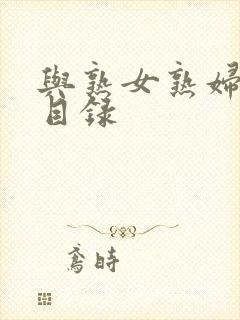 與熟女熟婦
目錄
鳶時